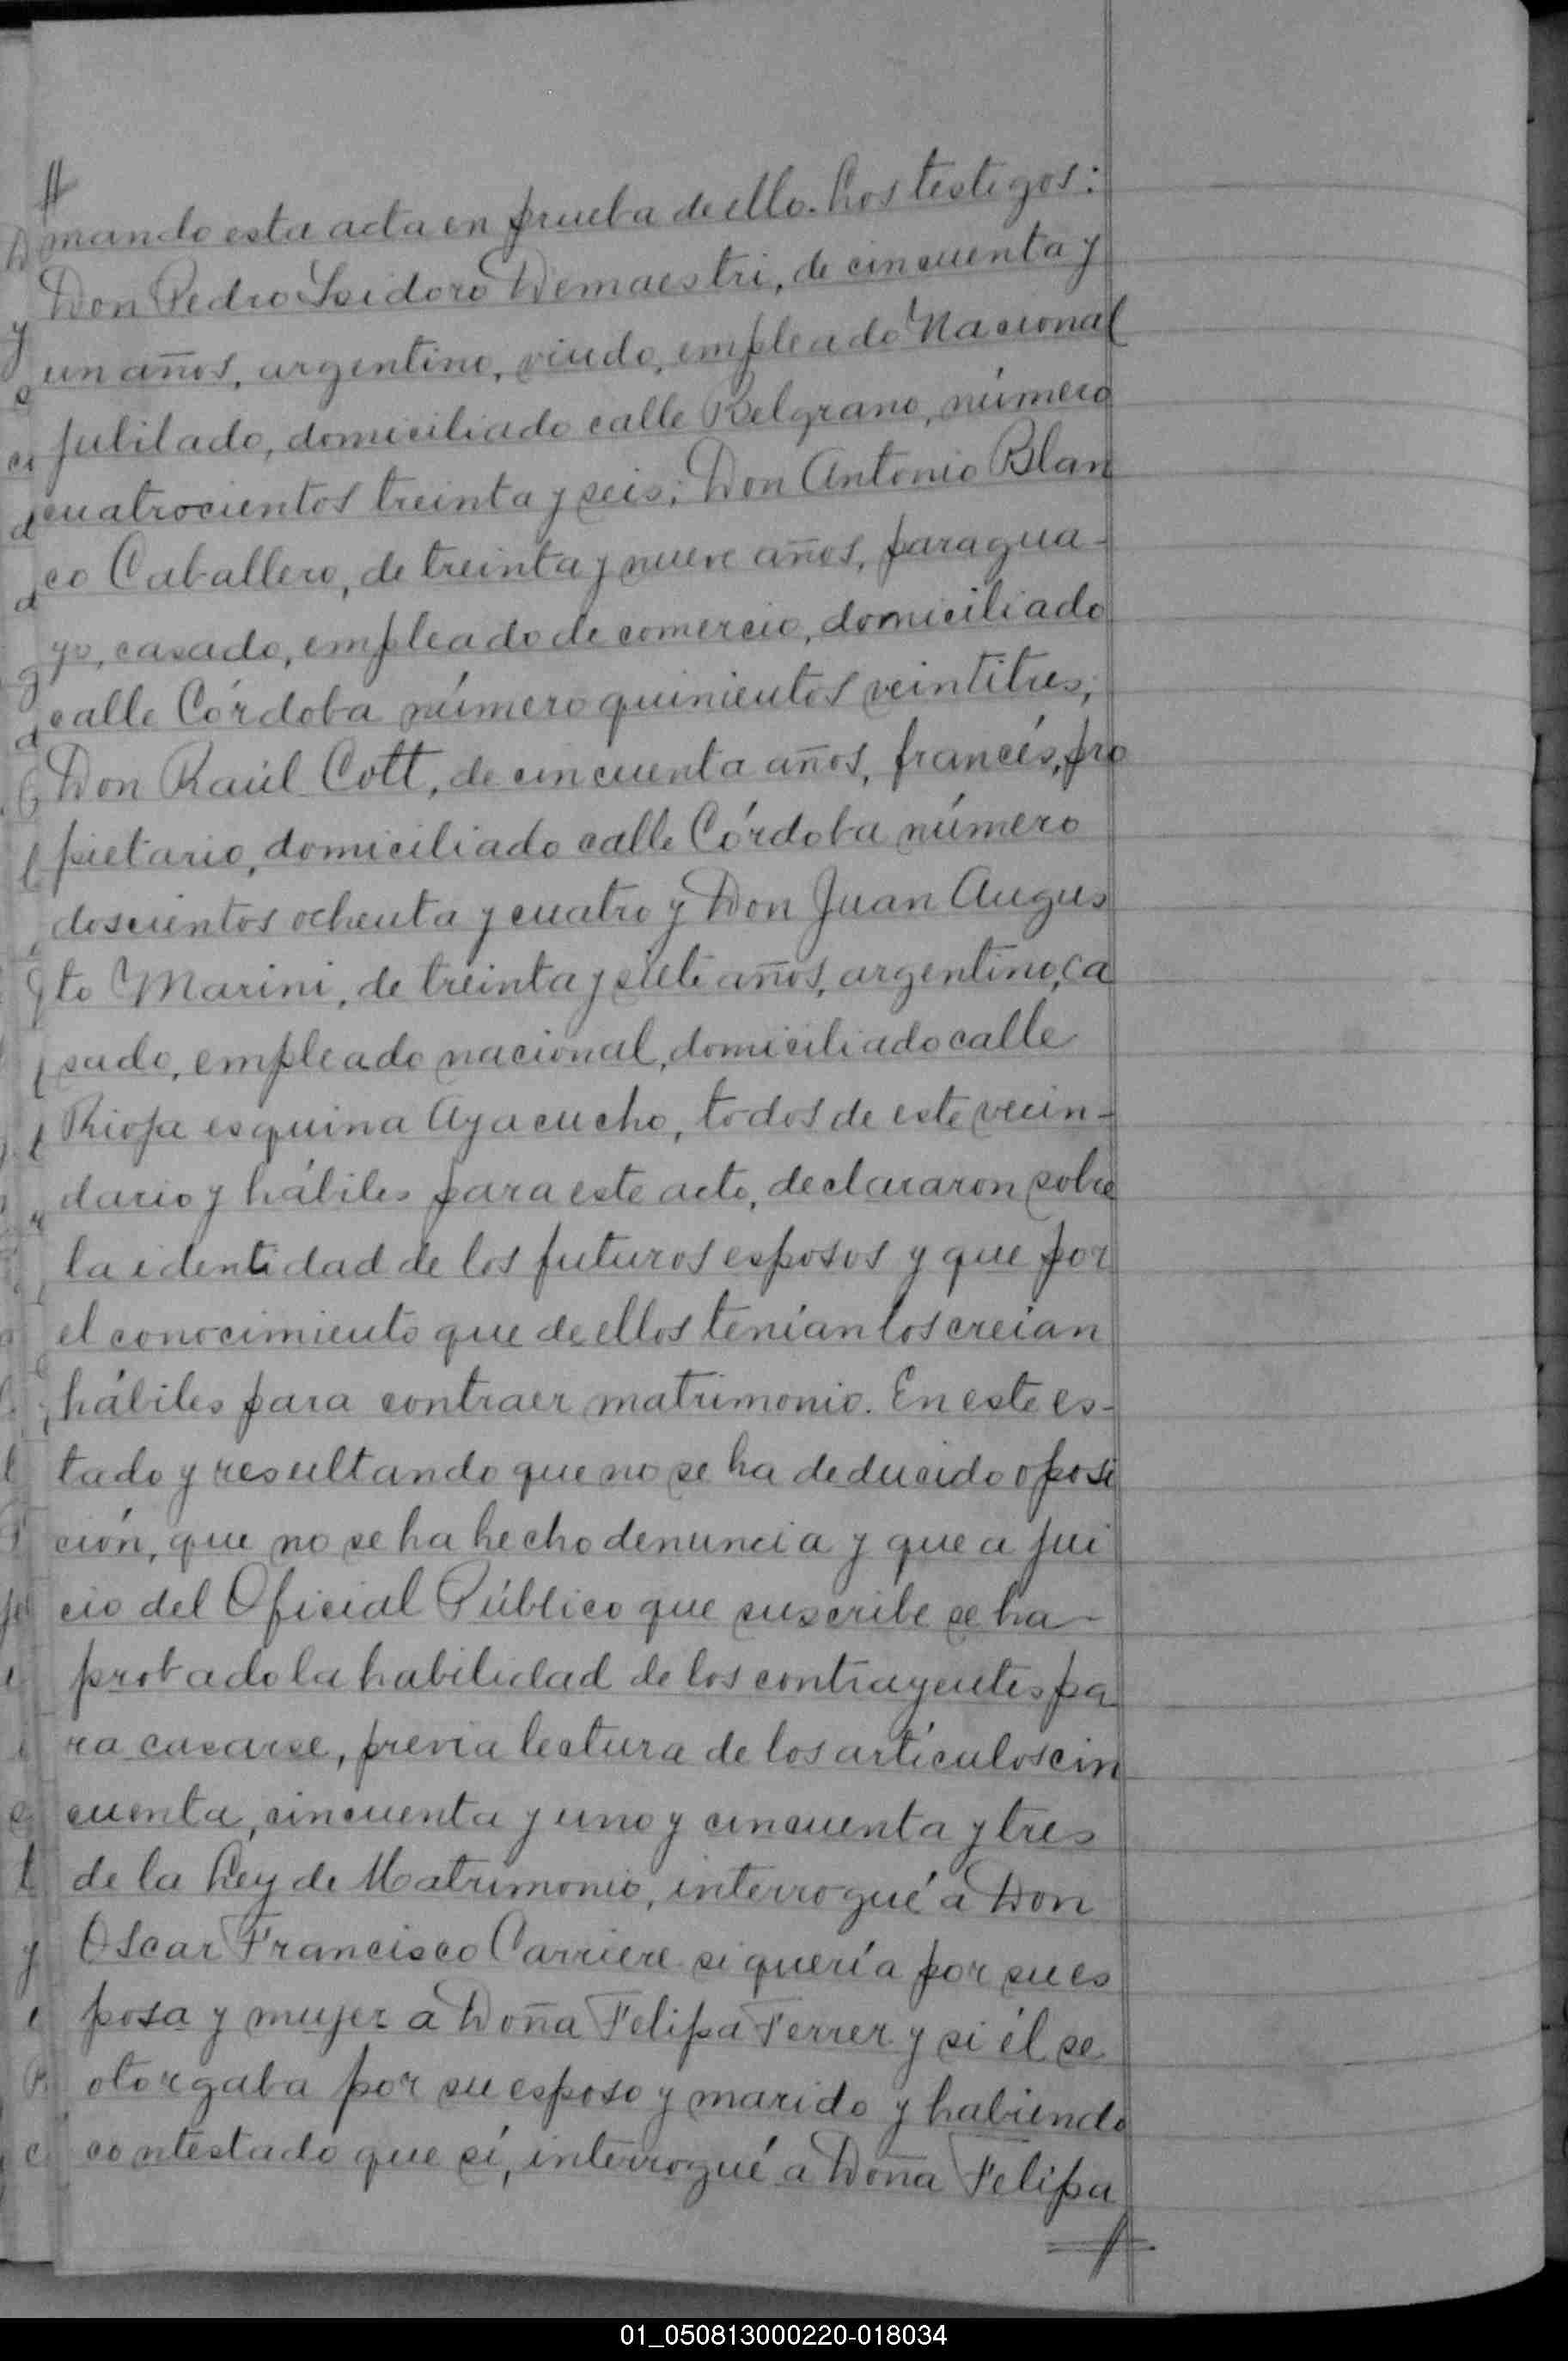 //
mando esta acta en prueba de ello. Los testigos:
Don Pedro Isidoro Demaestri, de cincuenta y
un años, argentino, viudo, empleado Nacional
jubilado, domiciliado calle Belgrano, número
cuatrocientos treinta y seis; Don Antonio Blan
co Caballero, de treinta y nueve años, paragua-
yo, casado, empleado de comercio, domiciliado
calle Córdoba número quinientos veintitres;
Don Raúl Cott, de cincuenta años, francés, pro
pietario, domiciliado calle Córdoba número
doscientos ochenta y cuatro y Don Juan Augus
to Marini, de treinta y siete años, argentino, ca
sado, empleado nacional, domiciliado calle
Rioja esquina Ayacucho, todos de este vecin-
dario y hábiles para este acto, declararon sobre
la identidad de los futuros esposos y que por
el conocimiento que de ellos tenían los creían
hábiles para contraer matrimonio. En este es-
tado y resultando que no se ha deducido oposi
ción, que no se ha hecho denuncia y que a jui
cio del Oficial Público que suscribe se ha-
probado la habilidad de los contrayentes pa
ra casarse, previa lectura de los artículos cin
cuenta, cincuenta y uno y cincuenta y tres
de la Ley de Matrimonio, interrogué a Don
Oscar Francisco Carriere si quería por su es
posa y mujer a Doña Felipa Ferrer y si él se
otorgaba por su esposo y marido y habiendo
contestado que sí, interrogué a Doña Felipa
//
01_050813000220-018034